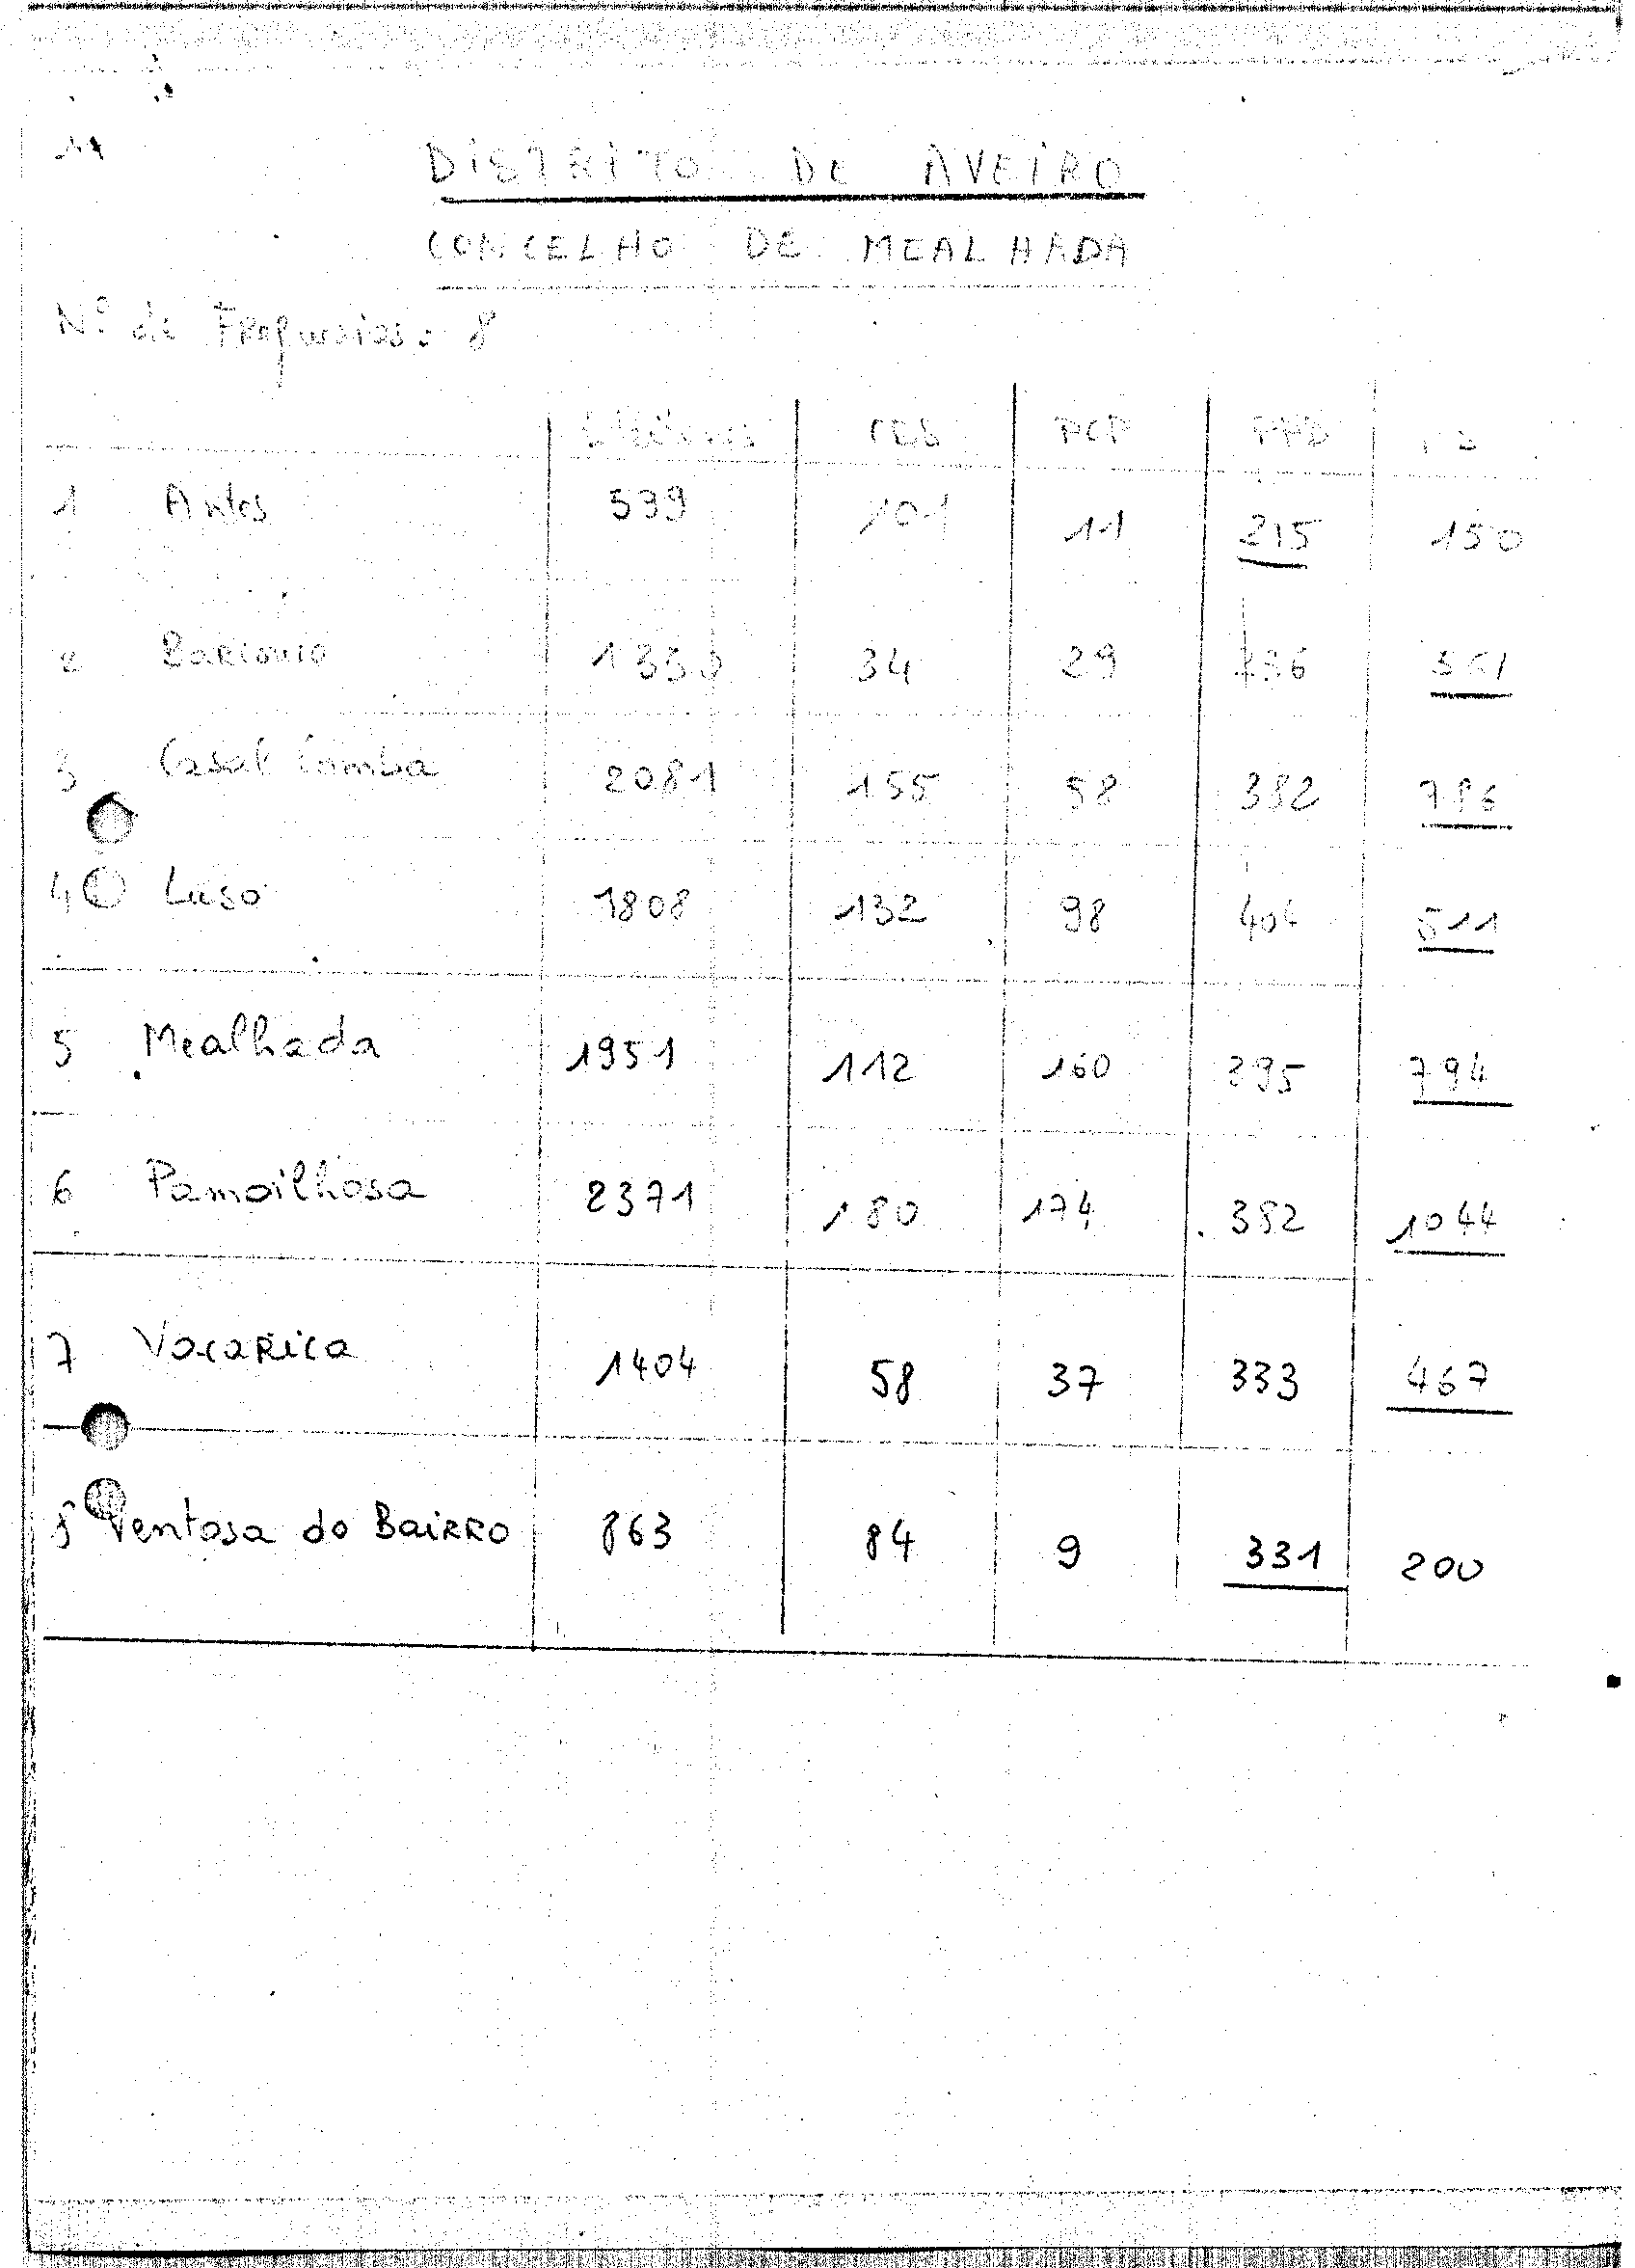 11
DISTRITO DE AVEIRO
CONCELHO DE MEALHADA
Nº de Freguesias: 8
CDS PCP PPD PS
1 Antes 539 101 11 215 150
2 34 29
3 Casal Comba 2081 155 58 382 786
4 Luso 1808 132 98 404 511
5 Mealhada 1951 112 160 395 794
6 Pampilhosa 2371 180 174 382 1044
7 Vacariça 1404 58 37 333 467
8 Ventosa do Bairro 863 84 9 331 200